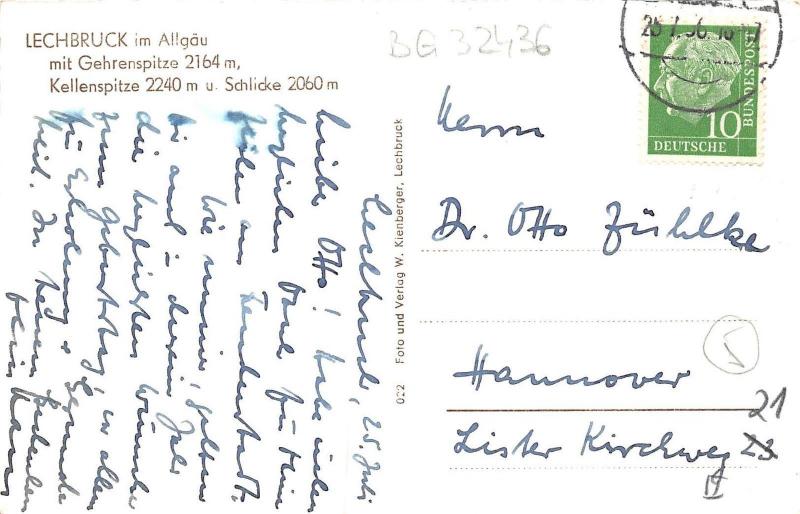 LECHBRUCK im Allgäu
mit Gehrenspitze 2164 m,
Kellenspitze 2240 m u. Schlicke 2060 m
BG 32436
25.7.56
DEUTSCHE
BUNDESPOST
10
Herrn
Dr. Otto Zühlke
Hannover
21
Lister Kirchweg 23
022 Foto und Verlag W. Kienberger, Lechbruck
Lechbruck, 25. Juli
Liebe Otto! Habe vielen
herzlichen Dank für Dein
aus Freudenstadt.
Wie immer, gelten
Dir auch in diesem Jahr
die herzlichsten Wünsche
zum Geburtstag, vor allem
für Erholung u. Gesunde
heit. In
Dein